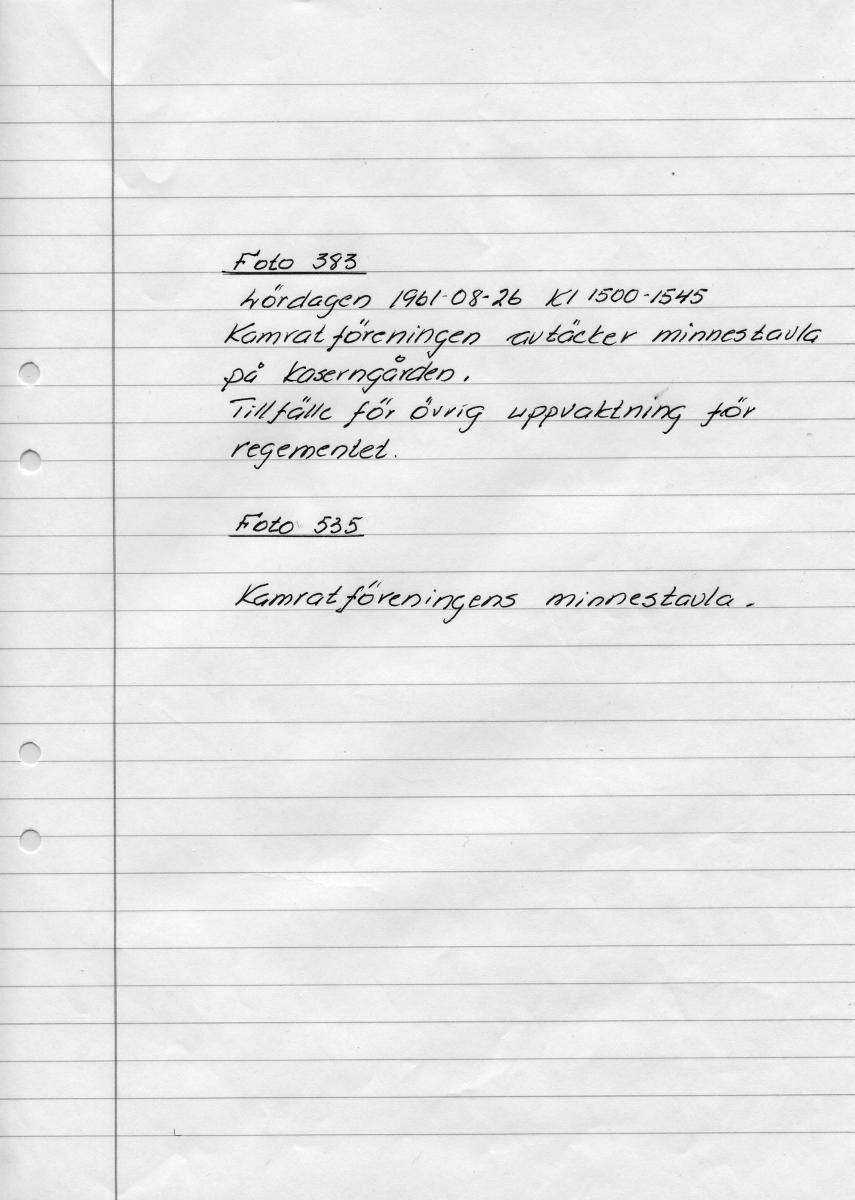 Foto 383
Lördagen 1961-08-26 Kl 1500-1545
Kamratföreningen avtäcker minnestavla
på kaserngården.
Tillfälle för övrig uppvaktning för
regementet.
Foto 535
Kamratföreningens minnestavla.